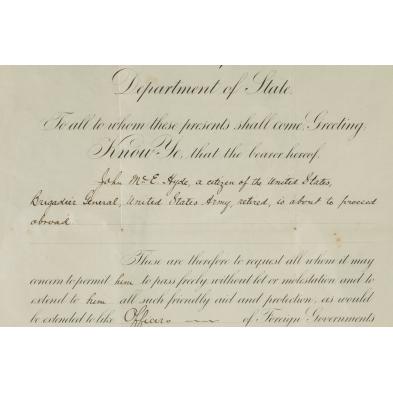 Department of State.
To all to whom these presents shall come, Greeting,
Know Ye, that the bearer hereof,
John McE. Hyde, a citizen of the United States,
Brigadier General, United States Army, retired, is about to proceed
abroad
These are therefore to request all whom it may
concern to permit him to pass freely without let or molestation and to
extend to him all such friendly aid and protection, as would
be extended to like Officers of Foreign Governments